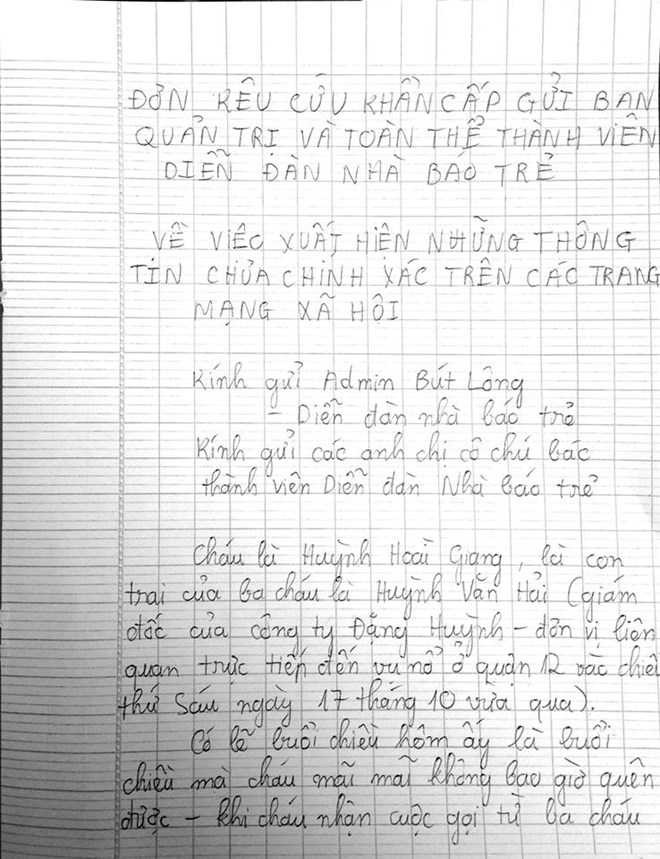 ĐƠN KÊU CỨU KHẨN CẤP GỬI BAN
QUẢN TRỊ VÀ TOÀN THỂ THÀNH VIÊN
DIỄN ĐÀN NHÀ BÁO TRẺ
VỀ VIỆC XUẤT HIỆN NHỮNG THÔNG
TIN CHƯA CHÍNH XÁC TRÊN CÁC TRANG
MẠNG XÃ HỘI
Kính gửi Admin Bút Lông
- Diễn đàn nhà báo trẻ
Kính gửi các anh chị cô chú bác
thành viên Diễn đàn Nhà báo trẻ
Cháu là Huỳnh Hoài Giang, là con
trai của ba cháu là Huỳnh Văn Hải (giám
đốc của công ty Đặng Huỳnh - đơn vị liên
quan trực tiếp đến vụ nổ ở quận 12 vào chiều
thứ Sáu ngày 17 tháng 10 vừa qua).
Có lẽ buổi chiều hôm ấy là buổi
chiều mà cháu mãi mãi không bao giờ quên
được - khi cháu nhận cuộc gọi từ ba cháu